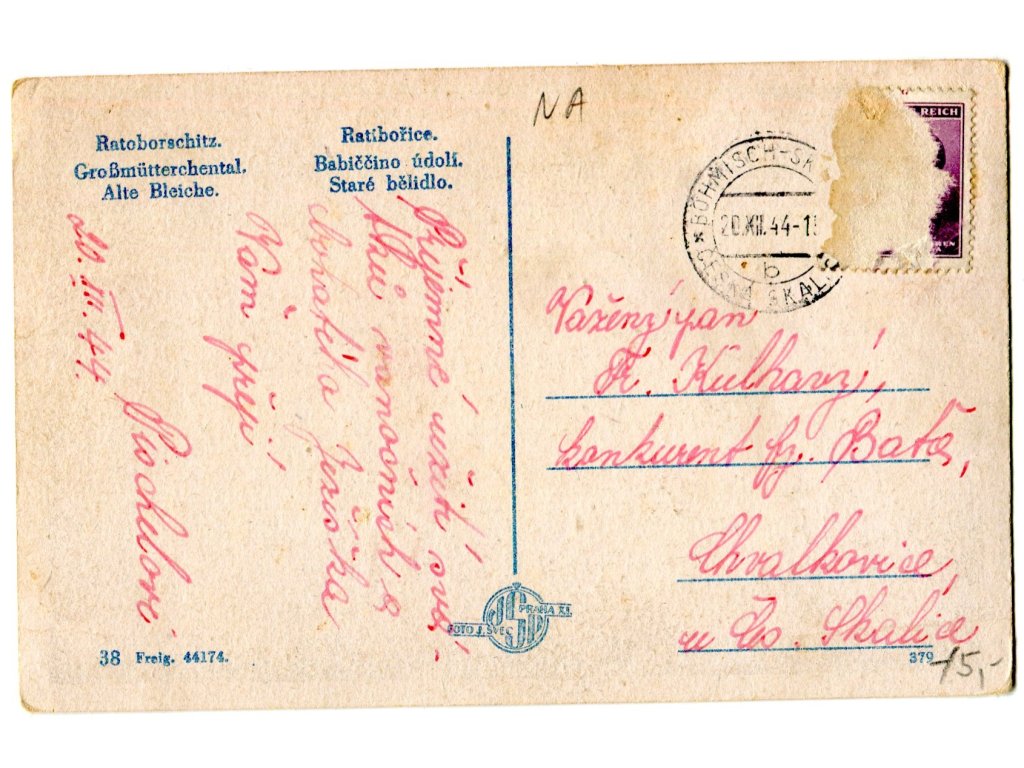 NA
Ratoborschitz.
Großmütterchental.
Alte Bleiche.
Ratibořice.
Babiččino údolí.
Staré bělidlo.
REICH
BÖHMISCH-SK
20.XII.44-1
b
ČESKÁ SKAL
20. XII. 44.
Příjemné užití svá-
tků vánočních a
bohatého Ježíška
Vám přejí
Vážený pan
Fr. Kulhavý,
konkurent fy. Baťa,
Chvalkovice,
u Čes. Skalice
FOTO J. ŠVEC
PRAHA XI.
38 Freig. 44174.
379
15,-